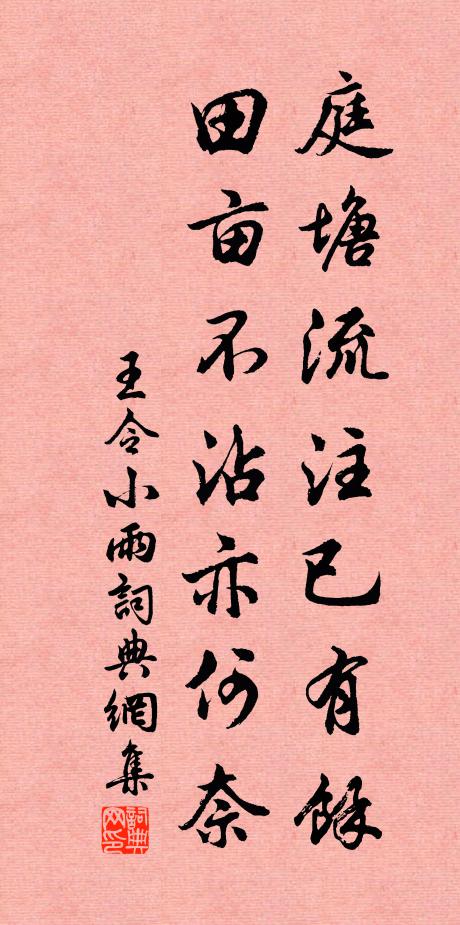 庭塘流注已有餘
田亩不沾亦何奈
王令小雨詞典網集
詞典网印